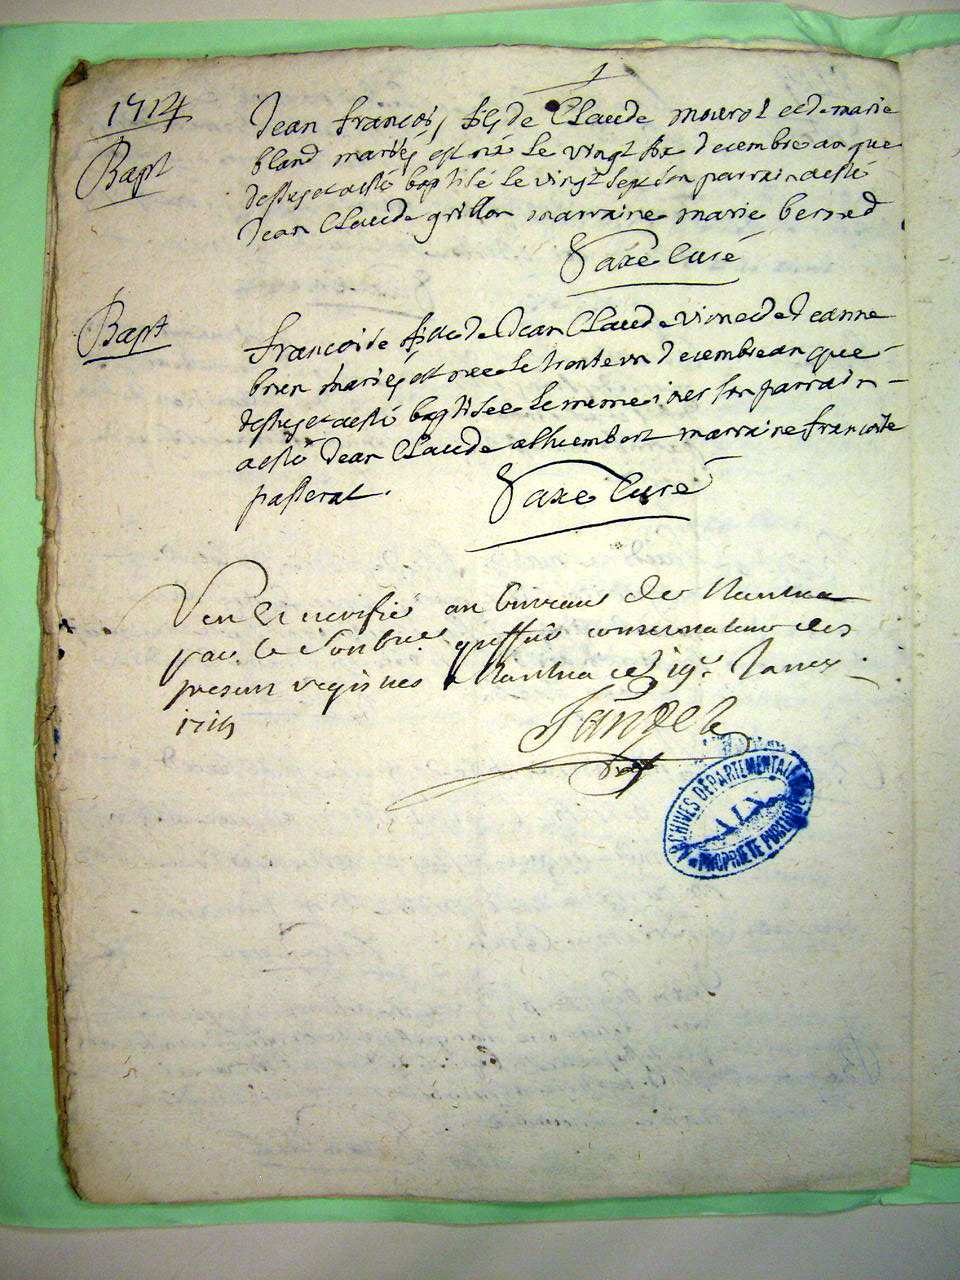 1714
Bapt
Jean françois fils de Claude mourot et de marie
bland mariés est né le vingt six decembre an que
dessus et a esté baptisé le vingt sept son parrain a esté
Jean Claude grillon marraine marie berned
Saxe Curé
Bapt
francoise fille de Jean Claude vione et de Jeanne
bren mariés est nee le trente un decembre an que
dessus et a esté baptisee le meme iour son parrain
a esté Jean Claude alhumbert marraine francoise
passerat.
Saxe Curé
Veu et verifié au bureau de Nantua
par le greffier conservateur des
presens registres a Nantua ce 19e Janvier
1715
ARCHIVES DÉPARTEMENTALES
PROPRIÉTÉ PUBLIQUE